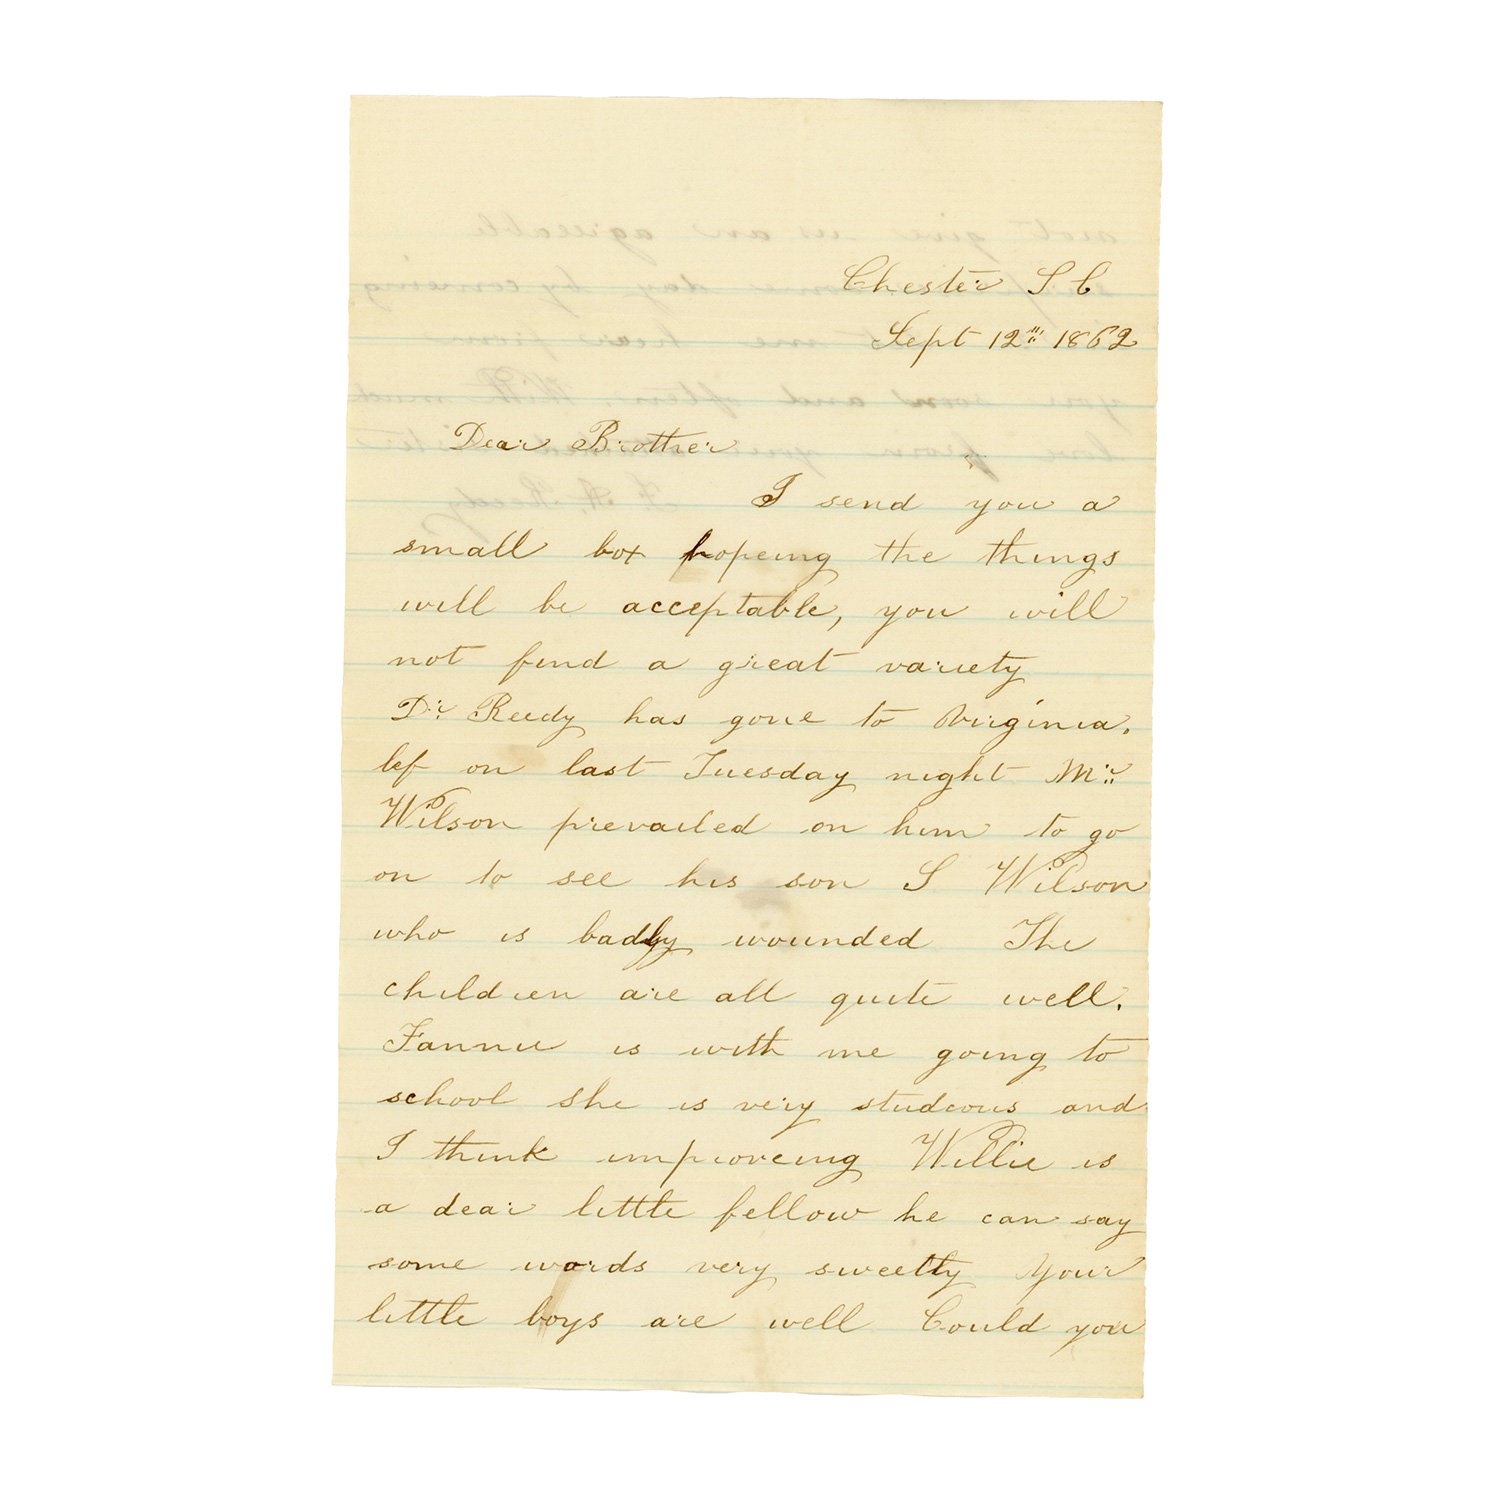 Chester S C
Sept 12th 1862
Dear Brother
I send you a
small box hopeing the things
will be acceptable, you will
not find a great variety
Dr. Reedy has gone to Virginia.
lef on last Tuesday night Mr.
Wilson prevailed on him to go
on to see his son S Wilson
who is badly wounded The
children are all quite well.
Fannie is with me going to
school she is very studeous and
I think improveing Willie is
a dear little fellow he can say
some words very sweetly Your
little boys are well Could you
not give us an agreeable
some day by comeing
me hear from
you soon and often. With much
love from your sister
F A Reedy